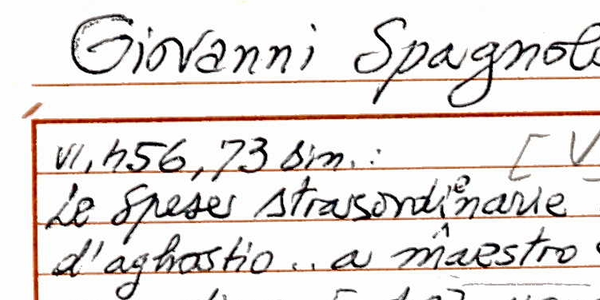 Giovanni Spagnolo
VI, h56, 73 sin.: [ V
Le spese strasordinarie
d'aghostio .. a maestro